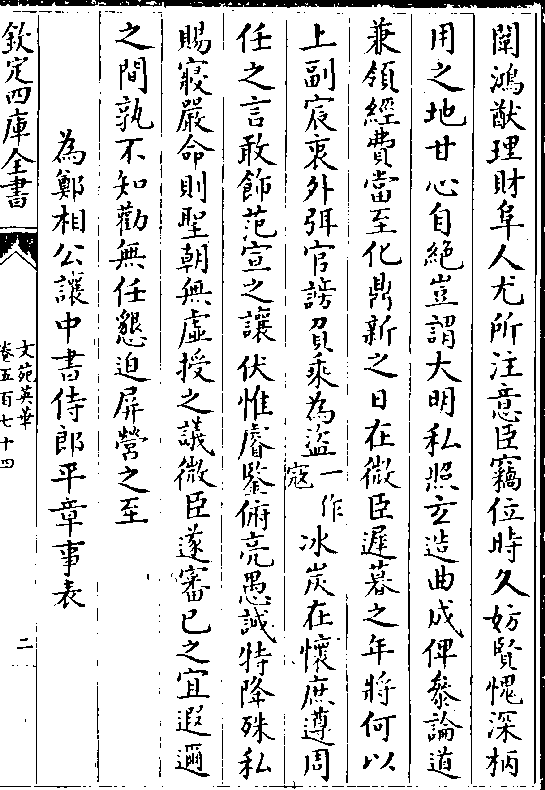 闡鴻猷理財阜人尤所注意臣竊位時久妨賢愧深柄
用之地甘心自絶豈謂大明私照玄造曲成俾叅論道
兼領經費當至化鼎新之日在微臣遲暮之年將何以
上副宸衷外弭官謗負乘為盜一作寇冰炭在懷庶遵周
任之言敢飾范宣之讓伏惟睿鑒俯亮愚誠特降殊私
賜寢嚴命則聖朝無虛授之議微臣遂審已之宜遐邇
之間孰不知勸無任懇迫屏營之至
為鄭相公讓中書侍郎平章事表
欽定四庫全書
文苑英華
卷五百七十四
二